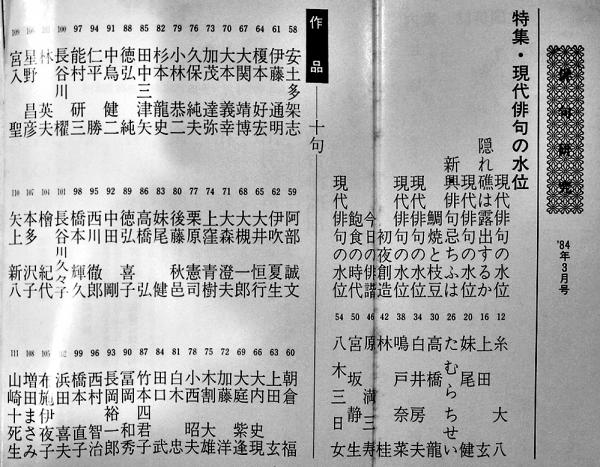 俳句研究
'84年3月号
特集・現代俳句の水位
現代俳句の水位 糸 大八 12
隠れ礁は露出するか 上田 玄 16
現代俳句の水位 妹尾 健 20
新興俳句忘ちふは たむらちせい 26
鯛焼と枝豆 高橋 龍 30
現代俳句の水位 白井房夫 34
現代俳句の水位 鳴戸奈菜 38
初夜創造 林 桂 42
今日の俳諧 原 満三寿 46
飽食の時代 宮坂静生 50
現代俳句の水位 八木三日女 54
作品――十句
58 安土多架志
61 伊藤通明
64 榎本好宏
67 大関靖博
70 大本義幸
73 加茂達弥
76 久保純夫
79 小林恭二
82 杉本龍史
85 田中三津矢
88 徳弘 純
91 中烏健二
94 仁平 勝
97 能村研三
100 長谷川 櫂
103 林 英男
106 星野昌彦
109 宮入 聖
59 阿部誠文
62 伊吹夏生
65 大井恒行
68 大槻一郎
71 大森澄夫
74 上窪青樹
77 栗原憲司
80 後藤秋邑
83 妹尾 健
86 高橋 弘
89 徳弘喜子
92 中田 剛
95 西川徹郎
98 橋本輝久
101 長谷川久々子
104 檜 紀代
107 本多沢子
110 矢上新八
60 朝倉 福
63 上田 玄
66 大内史現
69 大庭紫逢
72 加藤 洋
75 木割大雄
78 小西昭夫
81 白木 忠
84 田口 武
87 竹本四君子
90 冨岡和秀
93 長岡裕一郎
96 西村智治
99 橋本直子
102 浜田喜夫
105 布施伊夜子
108 増田まさみ
111 山崎死生